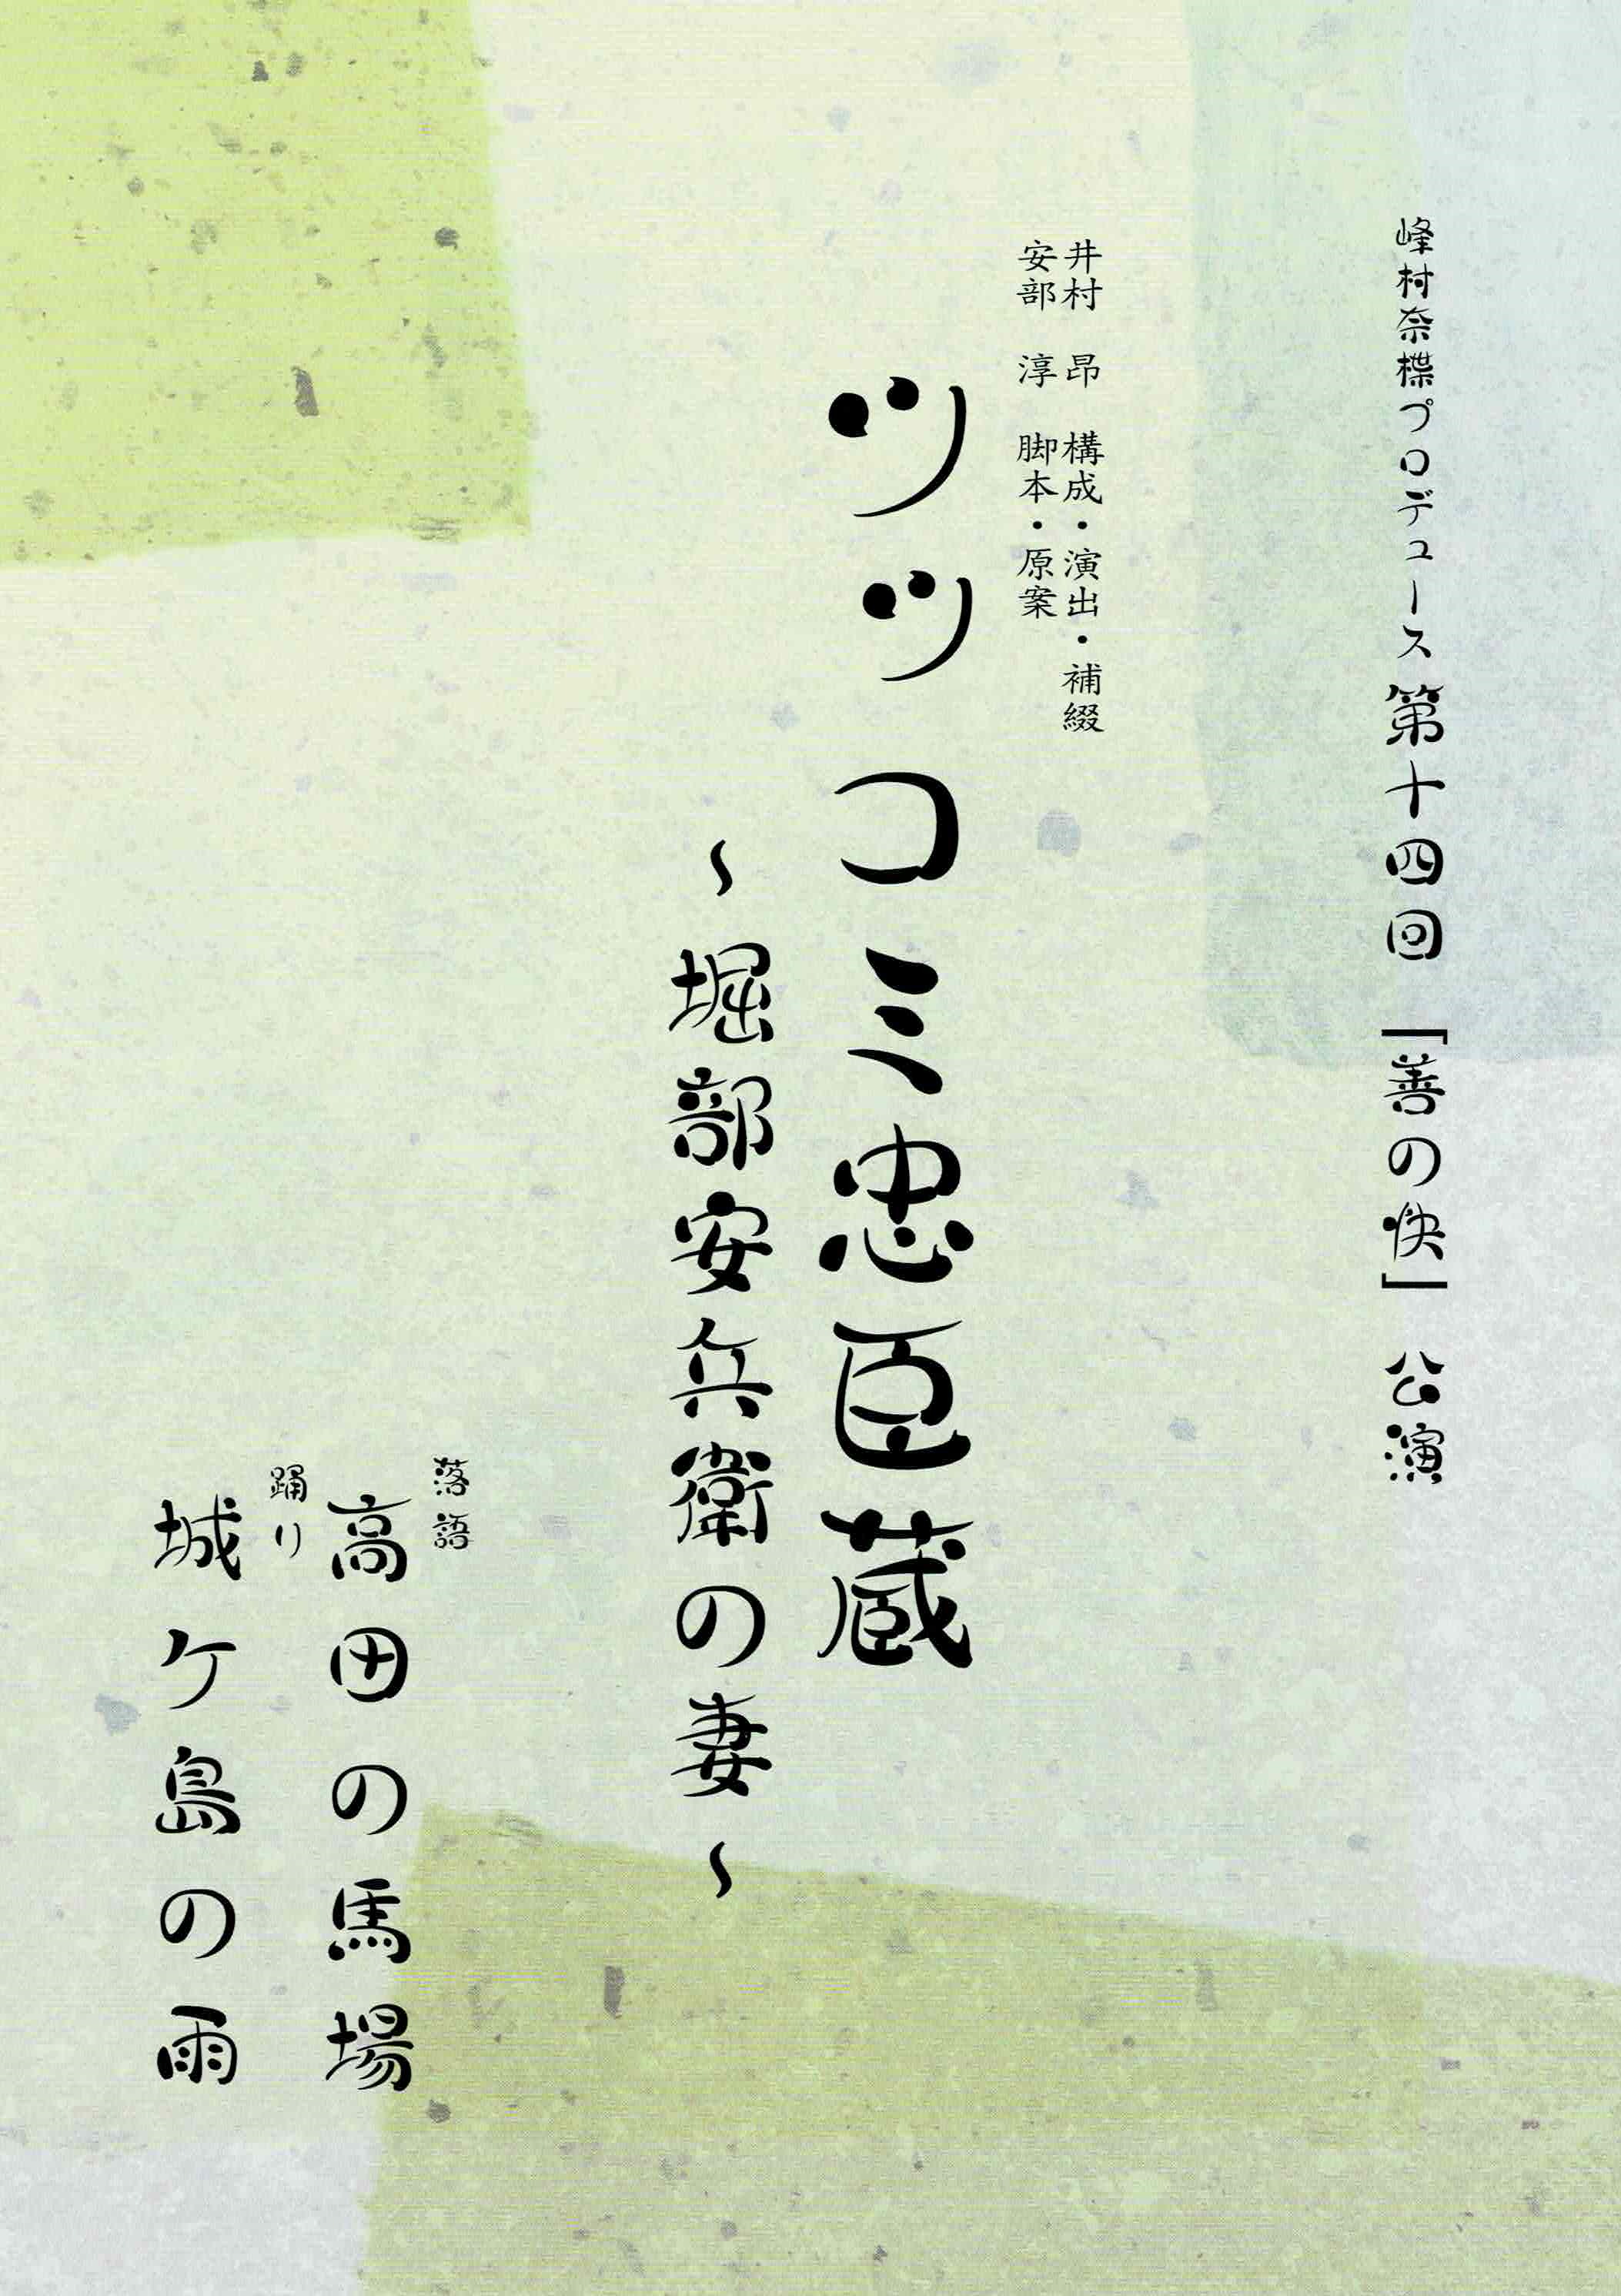 峰村奈楪プロデュース第十四回「善の快」公演
井村　昂　構成・演出・補綴
安部　淳　脚本・原案
ツッコミ忠臣蔵
～堀部安兵衛の妻～
落語
高田の馬場
踊り
城ケ島の雨